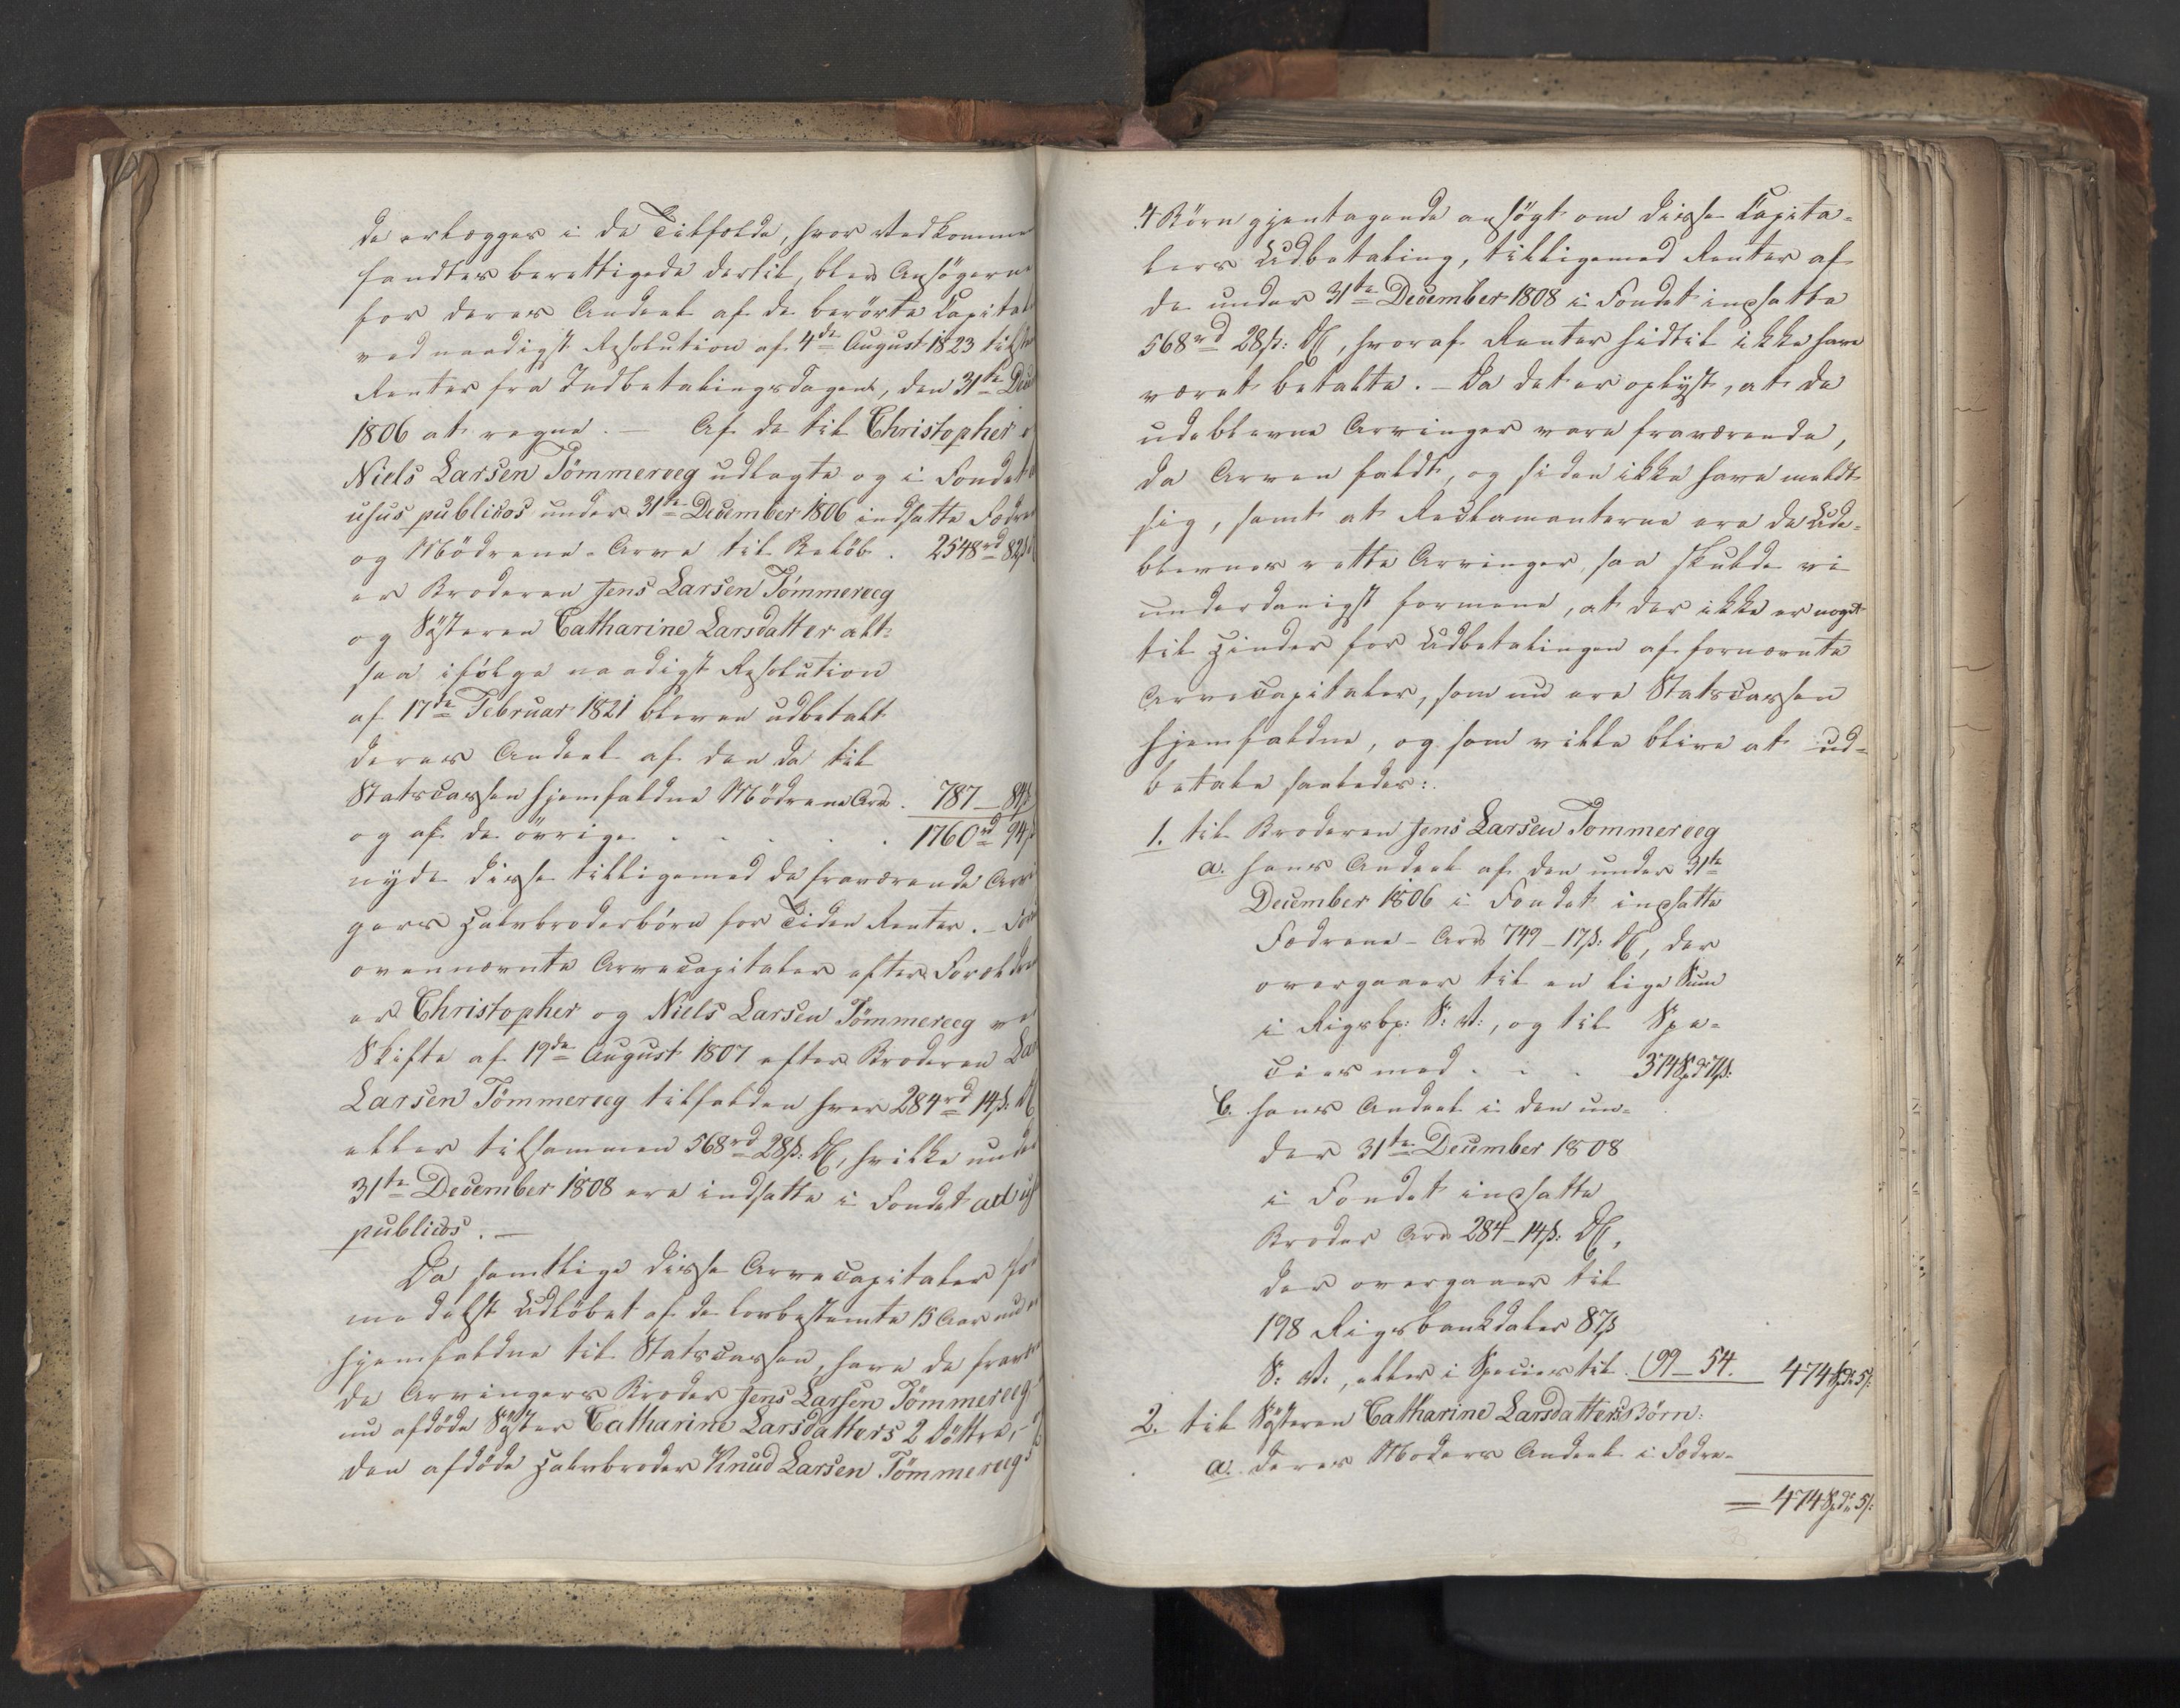 de erlægges i de Tilfælde, hvor Vedkomme
fandtes berettigede dertil, blev Ansögerne
for deres Andeel af de berörte Capital
ved naadigst Resolution af 4de August 1823 tilst
Renter fra Indbetalingsdagene, den 31te Dec
1806 at regne. — Af de til Christopher o
Niels Larsen Tömmereeg udlagte og i Fondet
usus publicos under 31te December 1806 indsatte Fædre
og Mödrene-Arve til Beløb . 2548rd 82ß
er Broderen Jens Larsen Tömmereeg
og Søsteren Catharine Larsdatter alt-
saa ifölge naadigst Resolution
af 17de Februar 1821 bleven udbetalt
deres Andeel af den da til
Statscassen hjemfaldne Mödrene Arv . 787 — 84ß
og af de övrige . . . . . 1760rd 94ß
nyde disse tilligemed de fraværende Arvi
gers Halvbroderbörn for Tiden Renter. —
ovennævnte Arvecapitaler efter Forældre
er Christopher og Niels Larsen Tömmereeg ve
Skifte af 19de August 1807 efter Broderen Lar
Larsen Tömmereeg tilfalden hver 284rd 14ß:
eller tilsammen 568rd 28ß: , hvilke unde
31te December 1808 ere indsatte i Fondet ad us
publicos. —
Da samtlige disse Arvecapitaler for
medelst Udlöbet af de lovbestemte 15 Aar nu er
hjemfaldne til Statscassen, have de frav
de Arvingers Broder Jens Larsen Tömmereeg
nu afdöde Søster Catharine Larsdatters 2 Döttre, —
den afdöde Halvbroder Knud Larsen Tömmereegs
4 Börn gjentagende ansögt om disse Capita-
lers Udbetaling, tilligemed Renter af
de under 31te December 1808 i Fondet indsatte
568rd 28ß: , hvoraf Renter hidtil ikke have
været betalte. — Da det er oplyst, at de
udeblevne Arvinger vare fraværende,
da Arven faldt, og siden ikke have meldt
sig, samt at Reclamanterne ere de Ude-
blevnes rette Arvinger, saa skulde vi
underdanigst formene, at der ikke er noget
til Hinder for Udbetalingen af fornævnte
Arvecapitaler, som nu ere Statscassen
hjemfaldne, og som ville blive at ud-
betale saaledes:
1. til Broderen Jens Larsen Tommereeg
a. hans Andeel af den under 31te
December 1806 i Fondet indsatte
Fædrene-Arv 749 — 17ß: , der
overgaaer til en lige Sum
i Rigsbp: S: V:, og til Spe-
cies med . . . 374 Spd 71ß:
b. hans Andeel i den un-
der 31te December 1808
i Fondet indsatte
Broder Arv 284 — 14ß: ,
der overgaaer til
198 Rigsbankdaler 87ß
S: V:, eller i Species til . 99 — 54. 474 Spd: 5ß:
2. til Søsteren Catharine Larsdatters Börn:
a. deres Moders Andeel i Fædre-
— 474 Spd: 5ß: